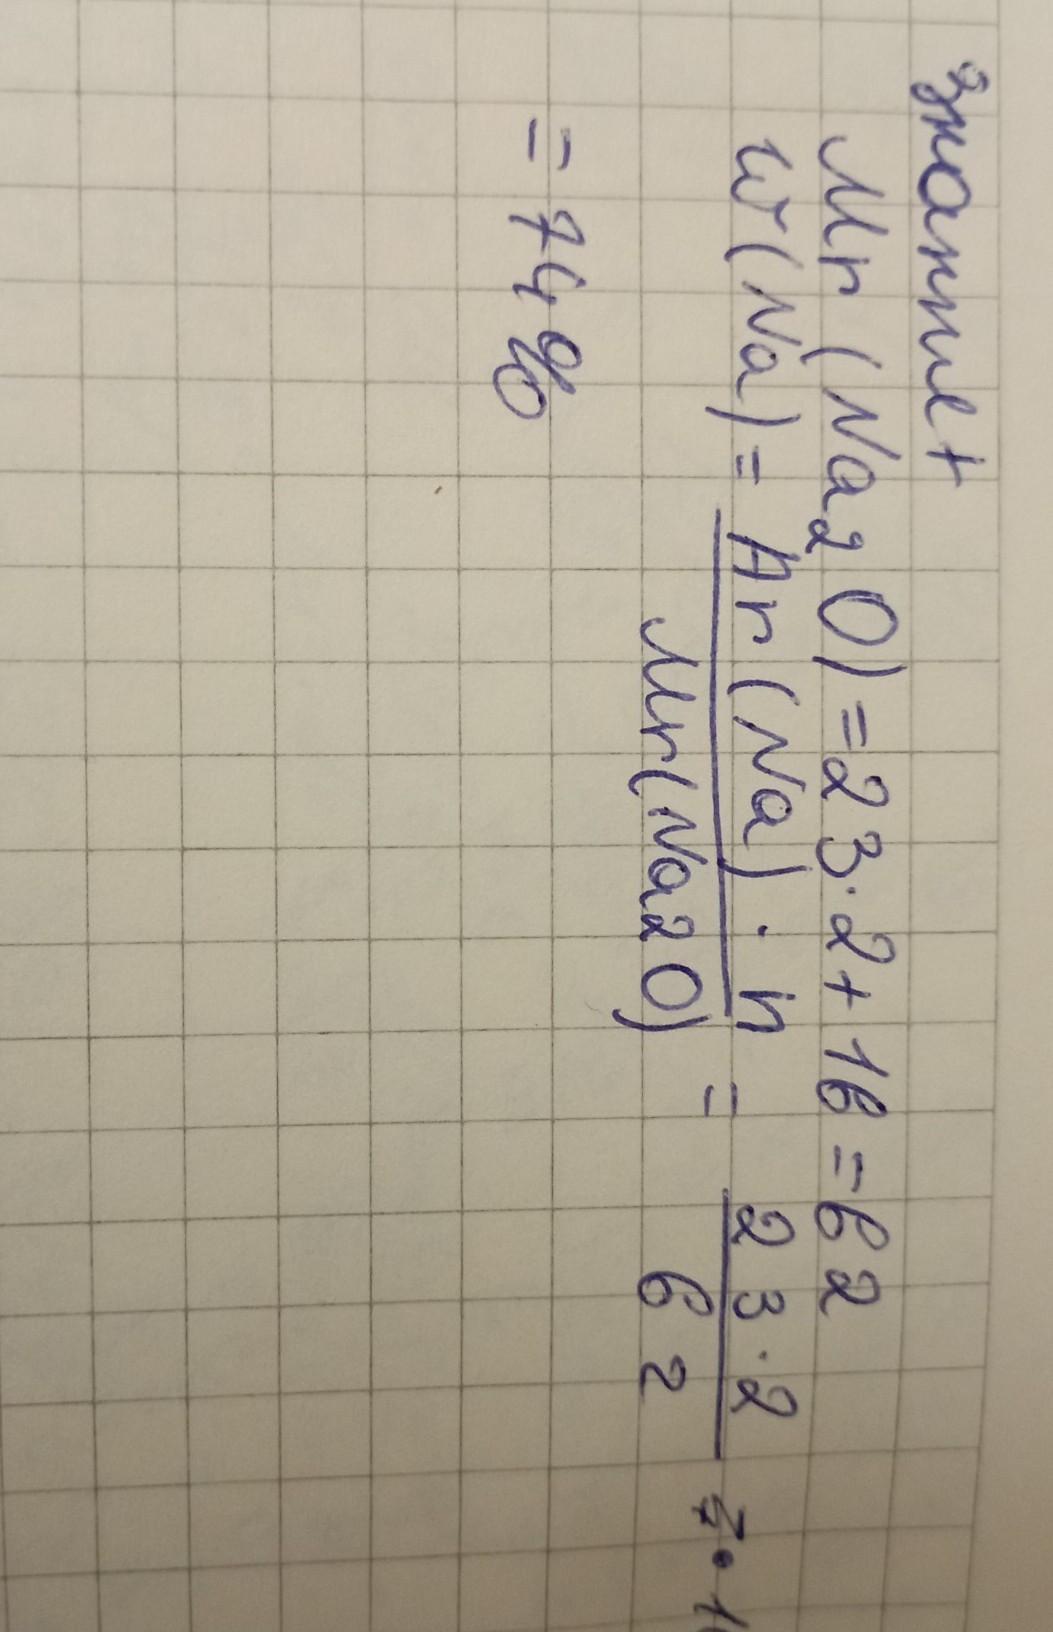 знання
Mr (Na₂O) = 23 · 2 + 16 = 62
w (Na) = Ar (Na) · n / Mr (Na₂O) = 23 · 2 / 62
= 74%